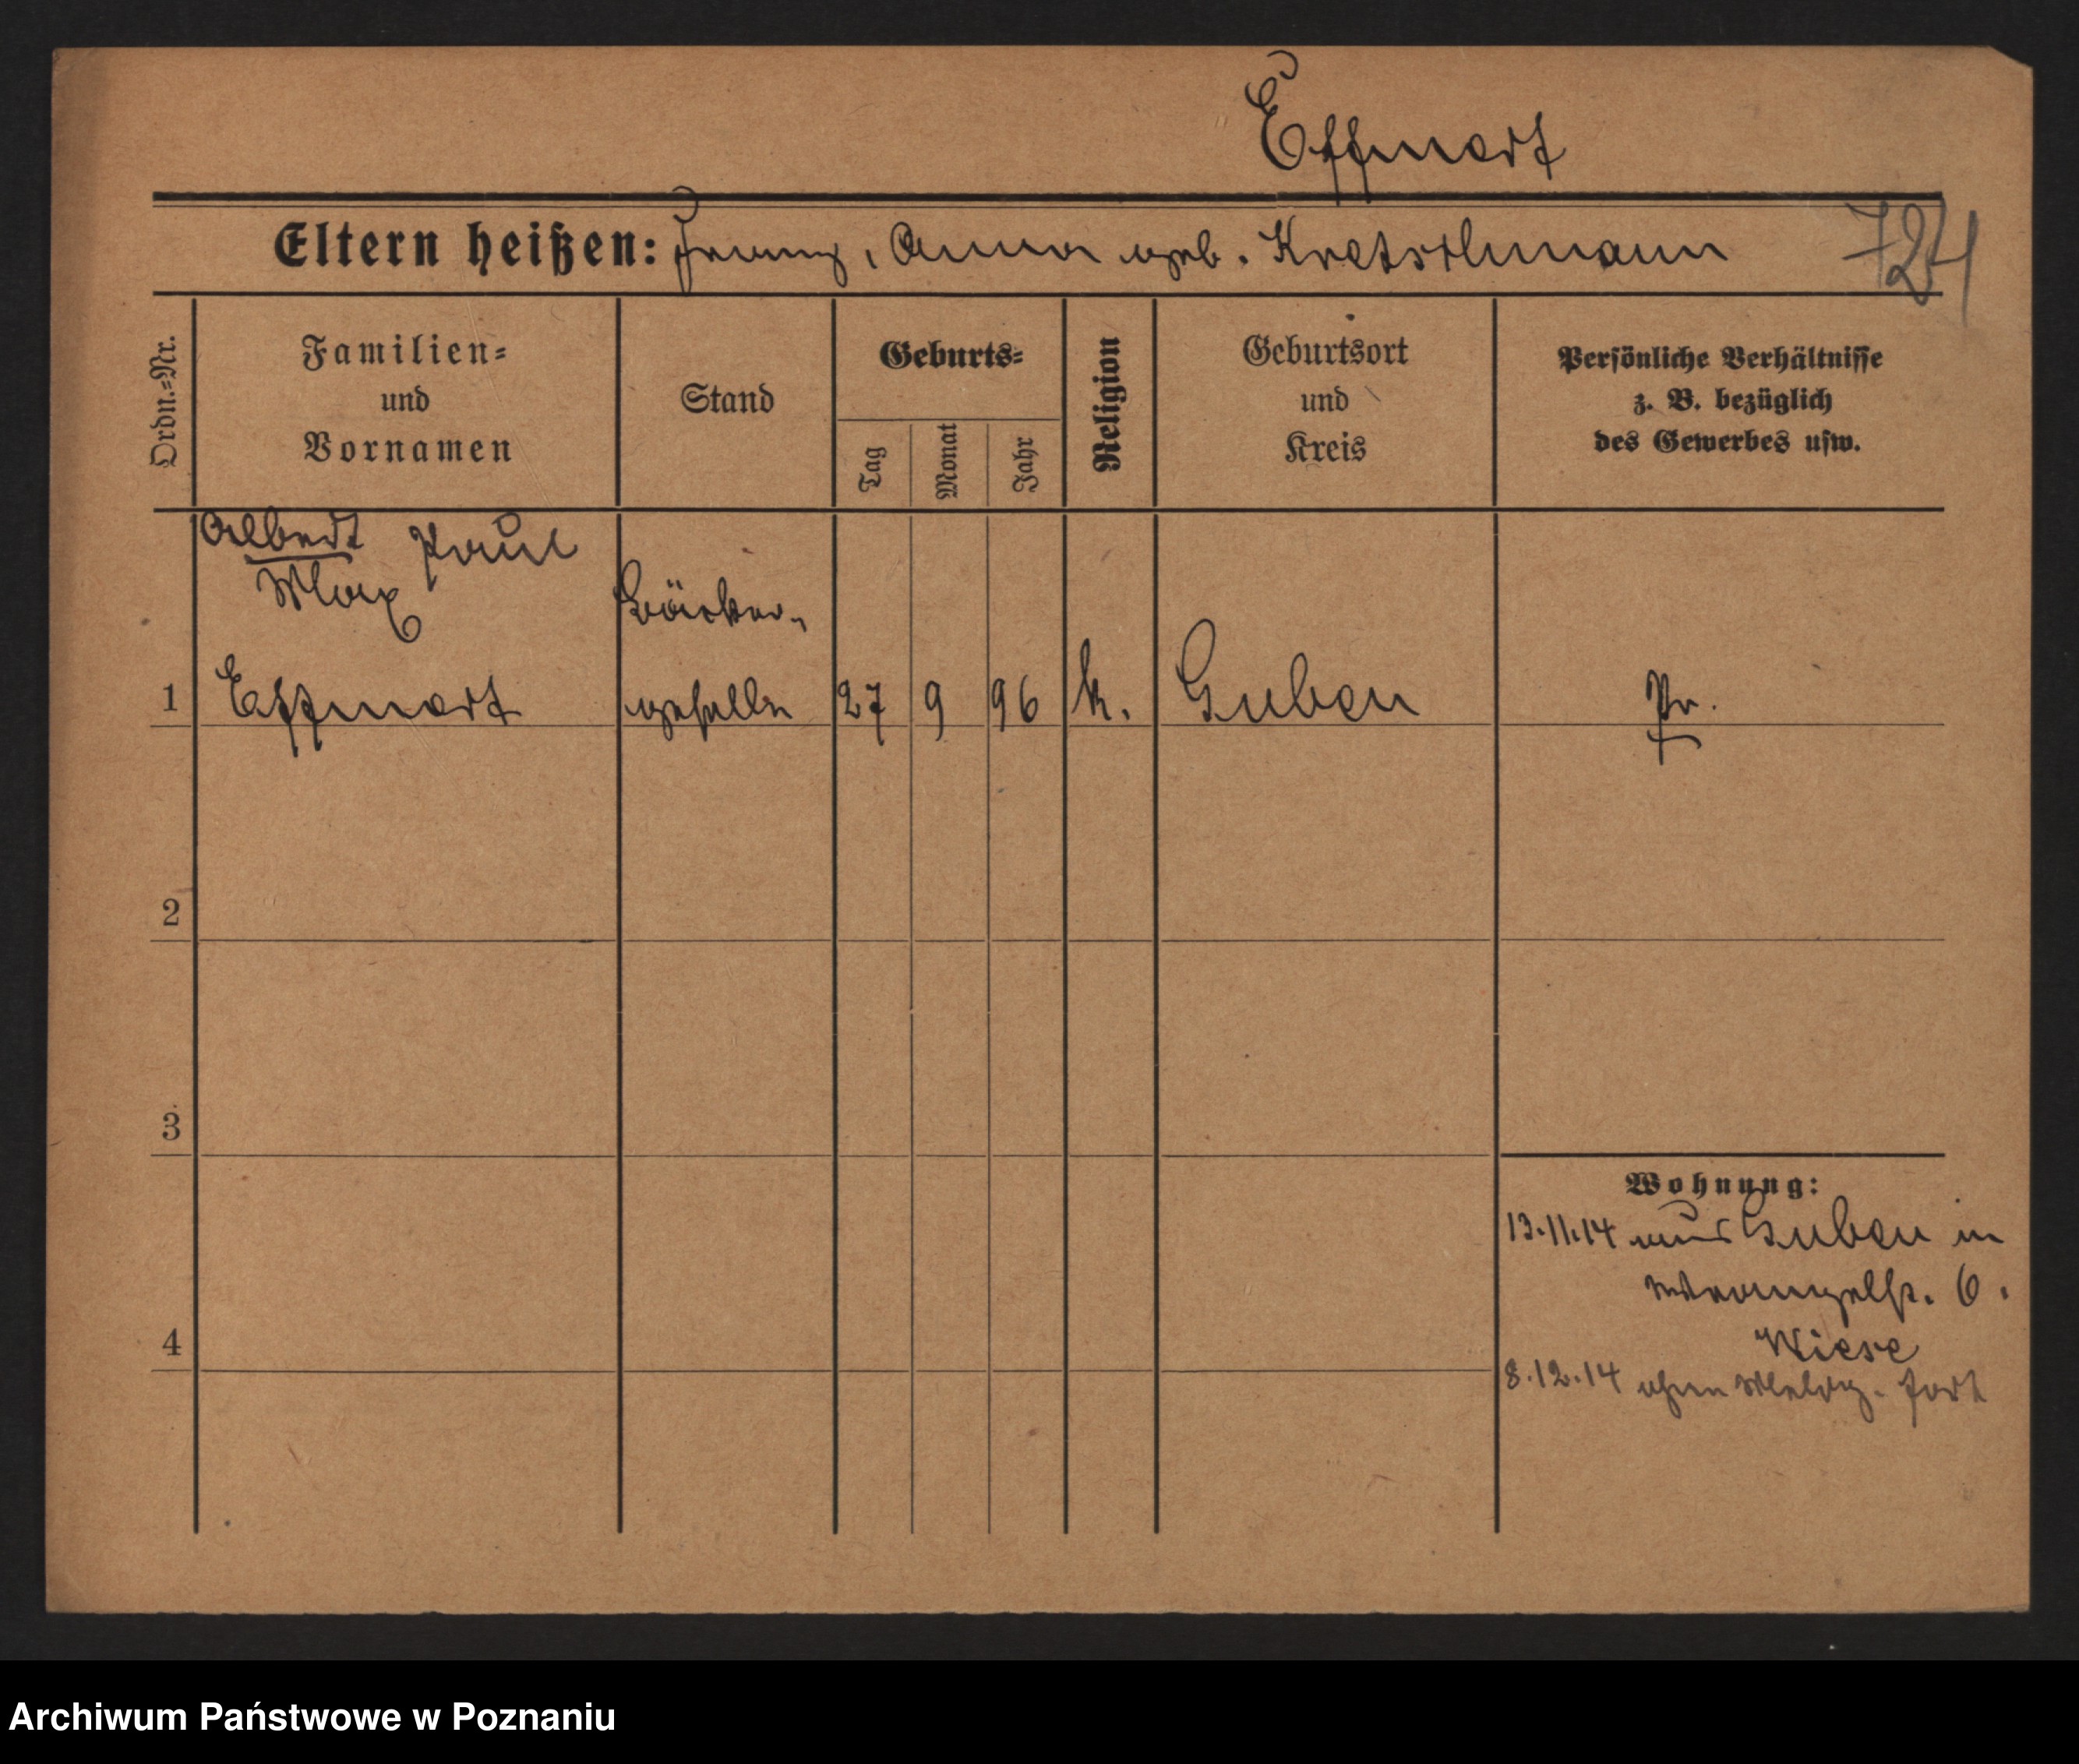 Effmert
Eltern heißen: Franz, Anna geb. Kretschmann
724
Ordn.=Nr.
Familien=
und
Vornamen
Stand
Geburts=
Tag
Monat
Jahr
Religion
Geburtsort
und
Kreis
Persönliche Verhältnisse
z. B. bezüglich
des Gewerbes usw.
Albert Paul
Max
Bäcker-
1 Effmert geselle 27 9 96 k. Guben Pr.
2
3
Wohnung:
13.11.14 aus Guben in
Wrangelstr. 6.
Wiese
4
8.12.14 ohne Meldg. fort
Archiwum Państwowe w Poznaniu